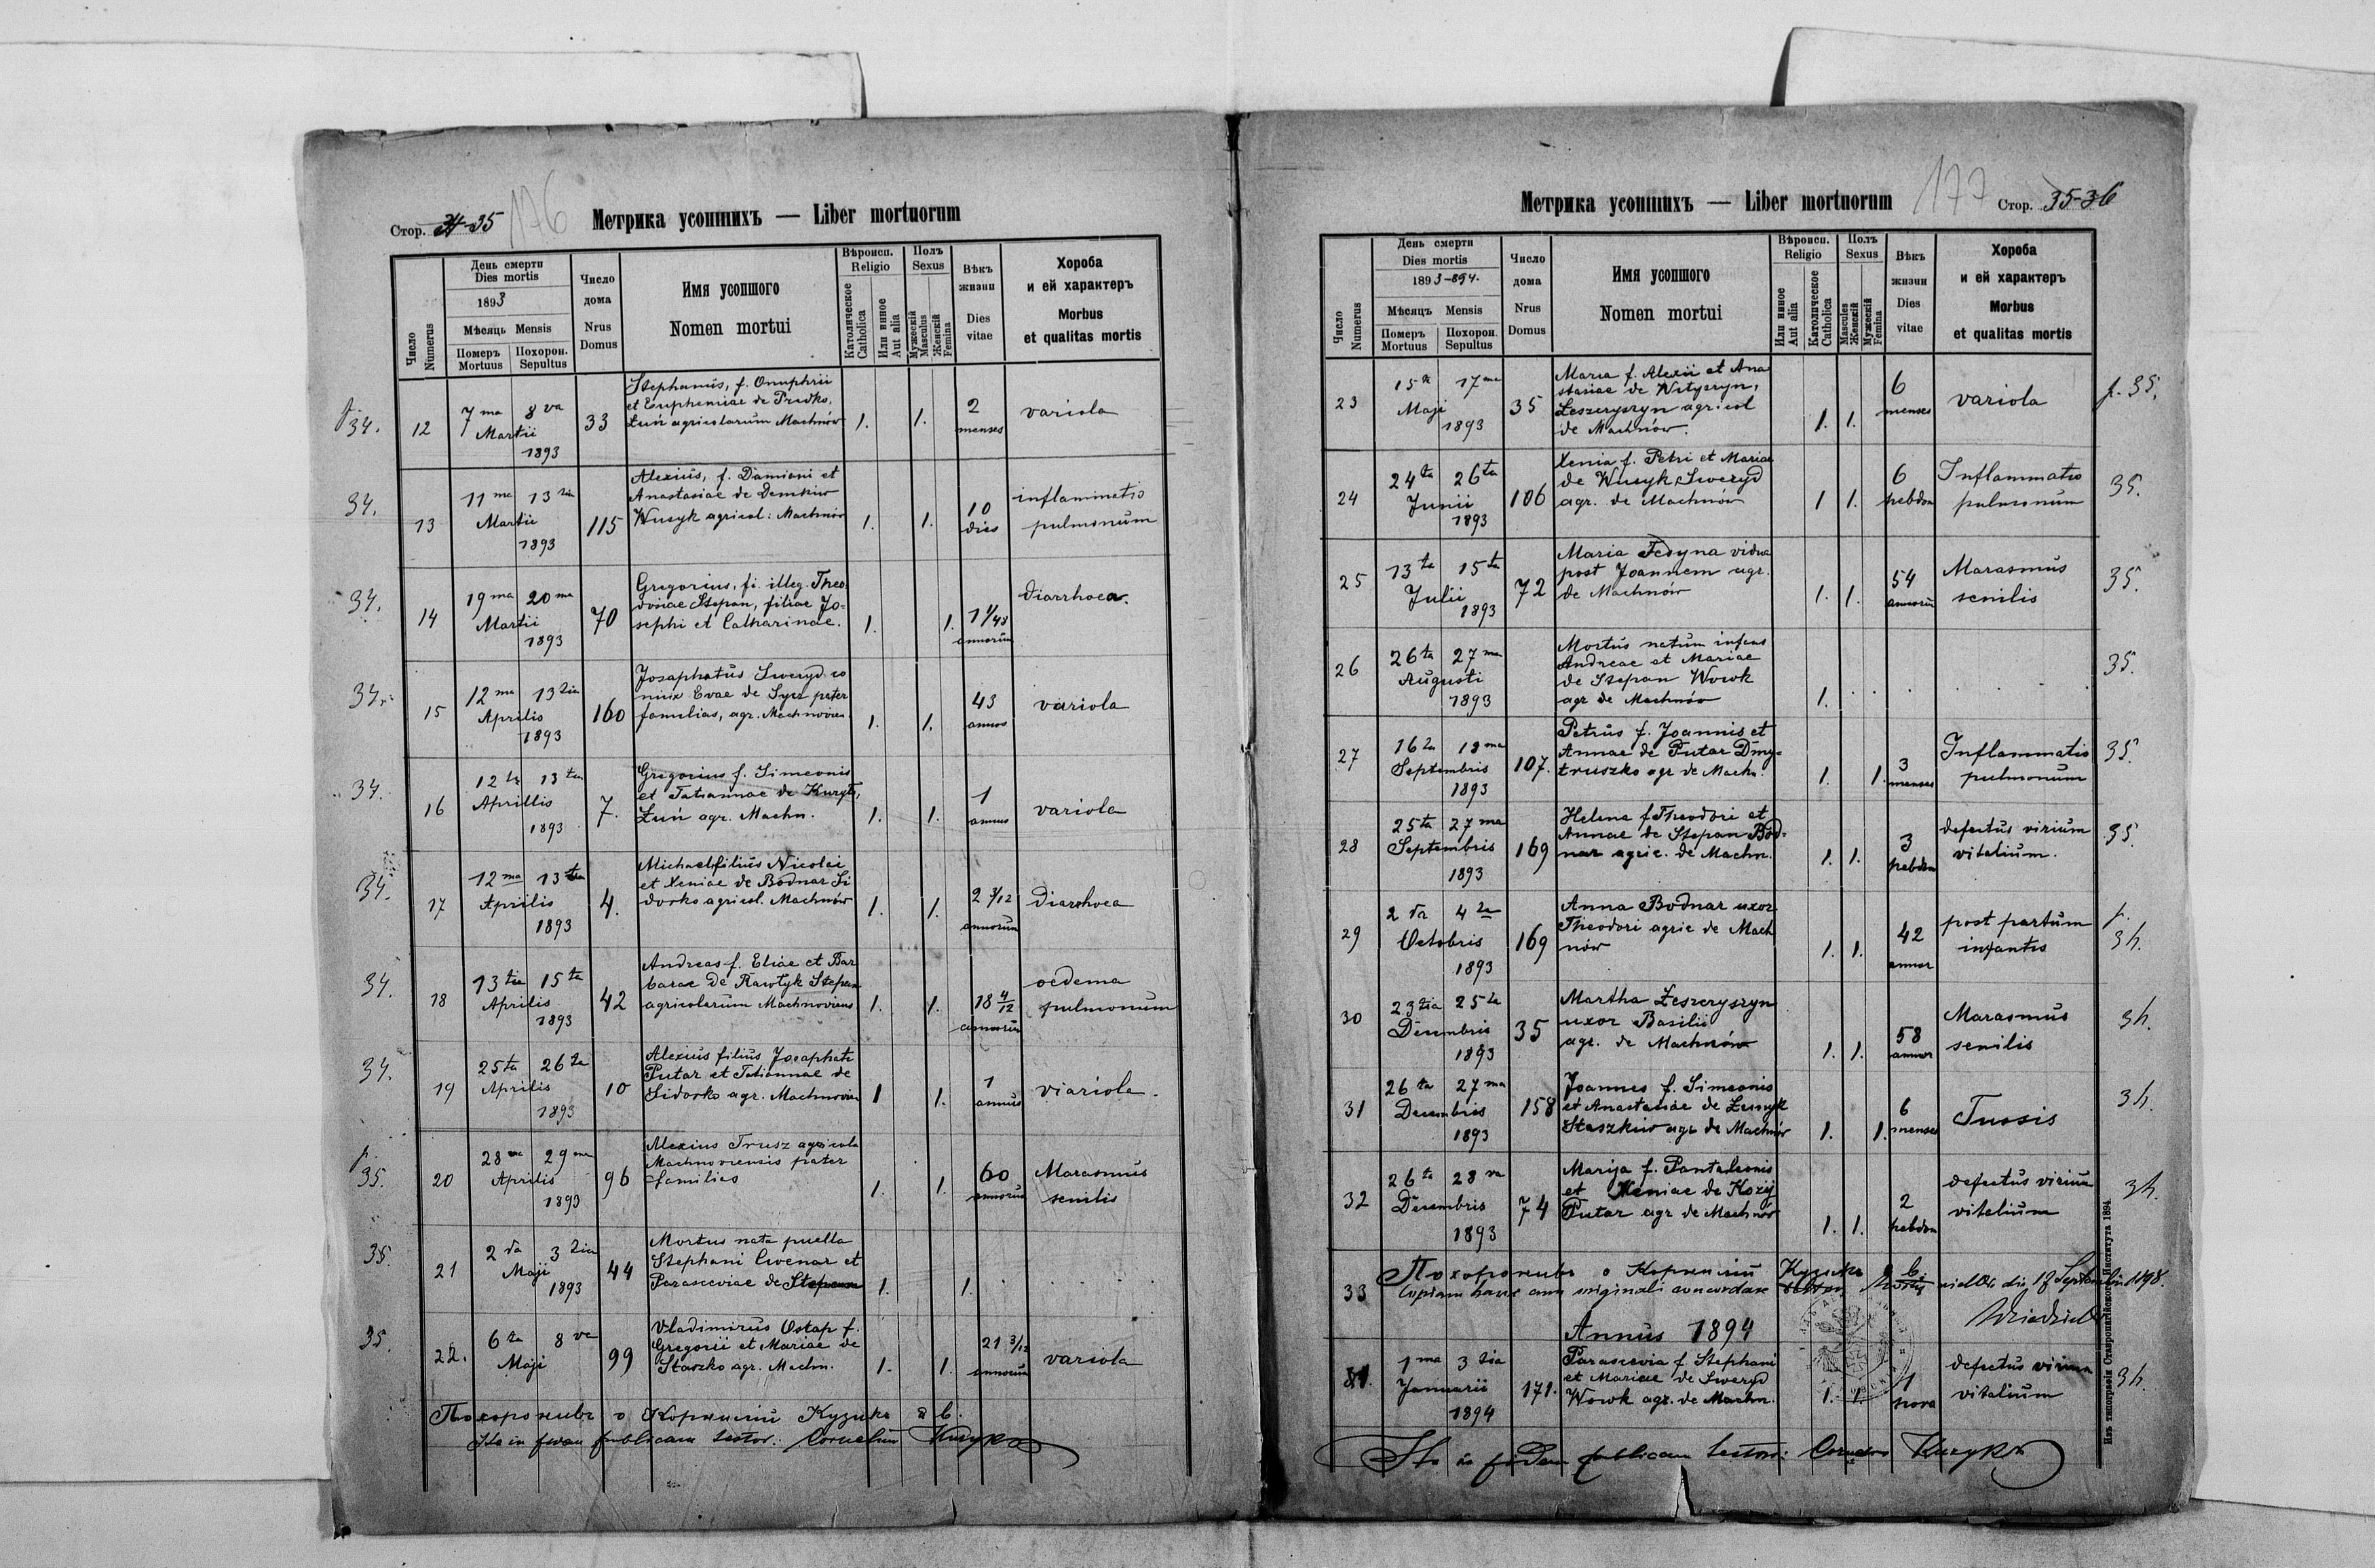 Стор. 34-35
176
Метрика усопшихъ — Liber mortuorum
Число Numerus
День смерти
Dies mortis
1893
Мѣсяць Mensis
Померъ Mortuus
Похорон. Sepultus
Число дома
Nrus Domus
Имя усопшого
Nomen mortui
Вѣроисп. Religio
Католическое Catholica
Или инное Aut alia
Полъ Sexus
Мужескій Masculus
Женскій Femina
Вѣкъ жизни
Dies vitae
Хороба
и ей характеръ
Morbus
et qualitas mortis
34. 12 7 ma 8 va Martii 1893 33
Stephanus, f. Onuphrii
et Eupheniae de Prudko,
Łuń agricolarum Machnów
1. 1. 2 menses variola
34. 13 11 ma 13 tia Martii 1893 115
Alexius, f. Damiani et
Anastasiae de Demkiw
Wusyk agricol: Machnów
1. 1. 10 dies inflammatio pulmonum
34. 14 19 ma 20 ma Martii 1893 70
Gregorius, fi. illeg. Theo
dosiae Stepan, filiae Jo=
sephi et Catharinae.
1. 1. 1 1/48 annorum diarrhoea.
34. 15 12 ma 13 tia Aprilis 1893 160
Josaphatus Sweryd co
niux Evae de Syez pater
familias, agr. Machnovien.
1. 1. 43 annos variola
34. 16 12 ta 13 tia Aprillis 1893 7.
Gregorius f. Simeonis
et Tatiannae de Kuryt,
Łuń agr. Machn.
1. 1. 1 annus variola
34. 17 12 ma 13 tia Aprilis 1893 4.
Michael filius Nicolai
et Xeniae de Bodnar Si
dorko agricol. Machnów
1. 1. 2 3/12 annorum Diarrhoea
34. 18 13 tia 15 ta Aprilis 1893 42
Andreas f. Eliae et Bar
barae de Rawłyk Stepan
agricolarum Machnoviens
1. 1. 18 4/12 annorum oedema pulmonum
34. 19 25 ta 26 ta Aprilis 1893 10
Alexius filius Josaphati
Putar et Tatiannae de
Sidorko agr. Machnovien
1 1. 1 annus viariola.
p. 35. 20 28 va 29 na Aprilis 1893 96
Alexius Trusz agricola
Machnoviensis pater
familias
1. 1. 60 annorum Marasmus senilis
35. 21 2 da 3 tia Maji 1893 44
Mortus nata puella
Stephani Cwenar et
Parasceviae de Stepanow
1. 1.
35. 22. 6 ta 8 va Maji 99
Vladimirus Ostap f.
Gregorii et Mariae de
Staszko agr. Machn.
1. 1. 21 3/12 annorum variola
Похоронивъ о Корнилій Кузыкъ
Ita in fidem publicam testor: Cornelius Kuzyk
Метрика усопшихъ — Liber mortuorum
177
Стор. 35-36
Число Numerus
День смерти
Dies mortis
1893-894.
Мѣсяцъ Mensis
Померъ Mortuus
Похорон. Sepultus
Число дома
Nrus Domus
Имя усопшого
Nomen mortui
Вѣроисп. Religio
Или инное Aut alia
Католическое Catholica
Полъ Sexus
Masculus Женскій
Мужескій Femina
Вѣкъ жизни
Dies vitae
Хороба
и ей характеръ
Morbus
et qualitas mortis
23 15 ta 17 ma Maji 1893 35
Maria f. Alexii et Ana
stasiae de Wityszyn,
Łeszczyszyn agricol
de Machnów.
1. 1. 6 menses variola p. 35.
24 24 ta 26 ta Junii 1893 106
Xenia f. Petri et Mariae
de Wusyk Sweryd
agr. de Machnów
1 1. 6 hebdom Inflammatio pulmonum 35.
25 13 ta 15 ta Julii 1893 72
Maria Fedyna vidua
post Joannem agr.
de Machnów
1. 1. 54 annorum Marasmus senilis 35.
26 26 ta 27 ma Augusti 1893
Mortus natum infans
Andreae et Mariae
de Stepan Wowk
agr de Machnów
1. 35.
27 16 ta 18 ma Septembris 1893 107.
Petrus f. Joannis et
Annae de Putar Dmy=
truszko agr de Machn.
1. 1. 3 menses Inflammatio pulmonum 35.
28 25 ta 27 ma Septembris 1893 169
Helena f Theodori et
Annae de Stepan Bod=
nar agric. de Machn.
1. 1. 3 hebdom defectus virium vitalium. 35.
29 2 da 4 ta Octobris 1893 169
Anna Bodnar uxor
Theodori agric de Mach
nów
1. 1. 42 annor post partum infantis
30 23 tia 25 ta Decembris 1893 35
Martha Łeszczyszyn
uxor Basilii
agr. de Machnów
1. 1. 58 annor Marasmus senilis
31 26 ta 27 ma Decembris 1893 158
Joannes f. Simeonis
et Anastasiae de
Staszkiw agr de Machnów
1. 1. 6 menses Tussis
32 26 ta 28 va Decembris 1893 74
Marija f. Pantaleonis
et Xeniae de Kozij
Putar agr de Machnów
1. 1. 2 hebdom defectus virium vitalium
33 Похоронивъ о Корнилій Кузыкъ
Copiam hanc cum originali concordare testor
Annus 1894
1. 1 ma 3 tia Januarii 1894 171.
Parascevia f Stephani
et Mariae de Sweryd
Wowk agr. de Machn.
1. 1. 1 hora defectus virium vitalium
Ita in fidem publicam testor: Cornelius Kuzyk
Изъ типографіи Ставропигійского Института 1894.